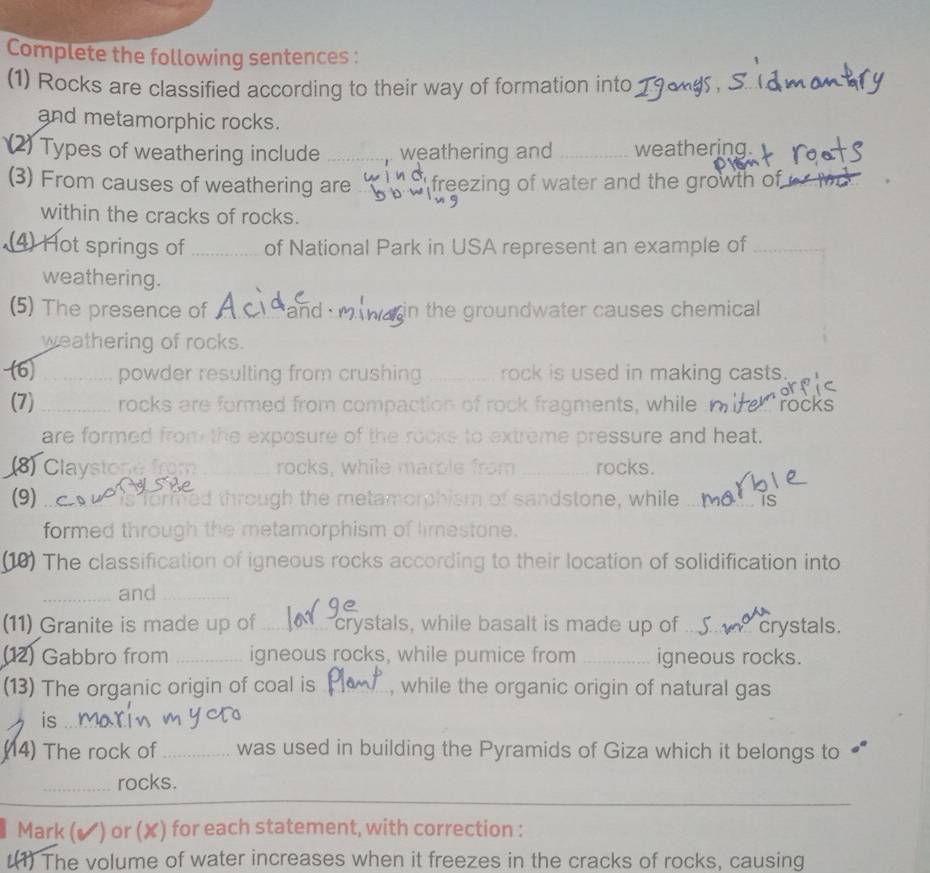 Complete the following sentences :
(1) Rocks are classified according to their way of formation into Igongs, Sidmantary
and metamorphic rocks.
(2) Types of weathering include ............, weathering and ............ weathering.
plant roots
(3) From causes of weathering are wind, freezing of water and the growth of
within the cracks of rocks.
(4) Hot springs of ............ of National Park in USA represent an example of ............
weathering.
(5) The presence of Acide and in the groundwater causes chemical
weathering of rocks.
(6) ............ powder resulting from crushing ............ rock is used in making casts.
(7) ............ rocks are formed from compaction of rock fragments, while mitemorpic rocks
are formed from the exposure of the rocks to extreme pressure and heat.
(8) Claystone from ............ rocks, while marble from ............ rocks.
(9) is formed through the metamorphism of sandstone, while marble is
formed through the metamorphism of limestone.
(10) The classification of igneous rocks according to their location of solidification into
............ and ............
(11) Granite is made up of large crystals, while basalt is made up of small crystals.
(12) Gabbro from ............ igneous rocks, while pumice from ............ igneous rocks.
(13) The organic origin of coal is Plant, while the organic origin of natural gas
is marin mycro
(14) The rock of ............ was used in building the Pyramids of Giza which it belongs to
............ rocks.
Mark (✔) or (✗) for each statement, with correction :
(1) The volume of water increases when it freezes in the cracks of rocks, causing